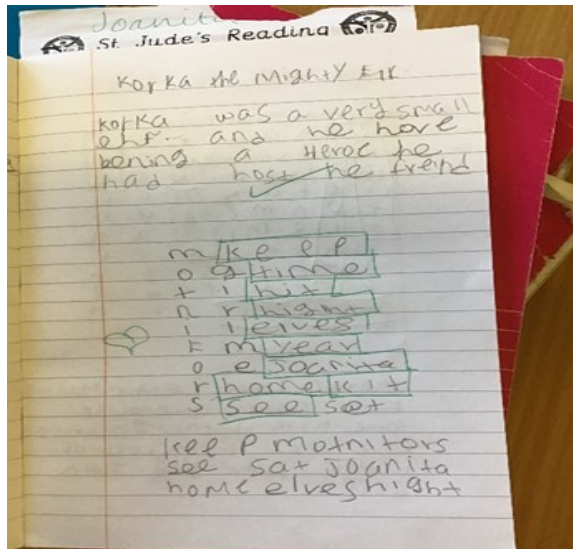 Joanita
St. Jude's Reading
Korka the Mighty Elf
Korka was a very small
and he hove
bening a Heroe he
had host he freind
m keep
o g time
t i hit
n r hight
i i elves
t m year
o e Joanita
r home kit
s see sat
keep motnitors
see sat joanita
home elves hight